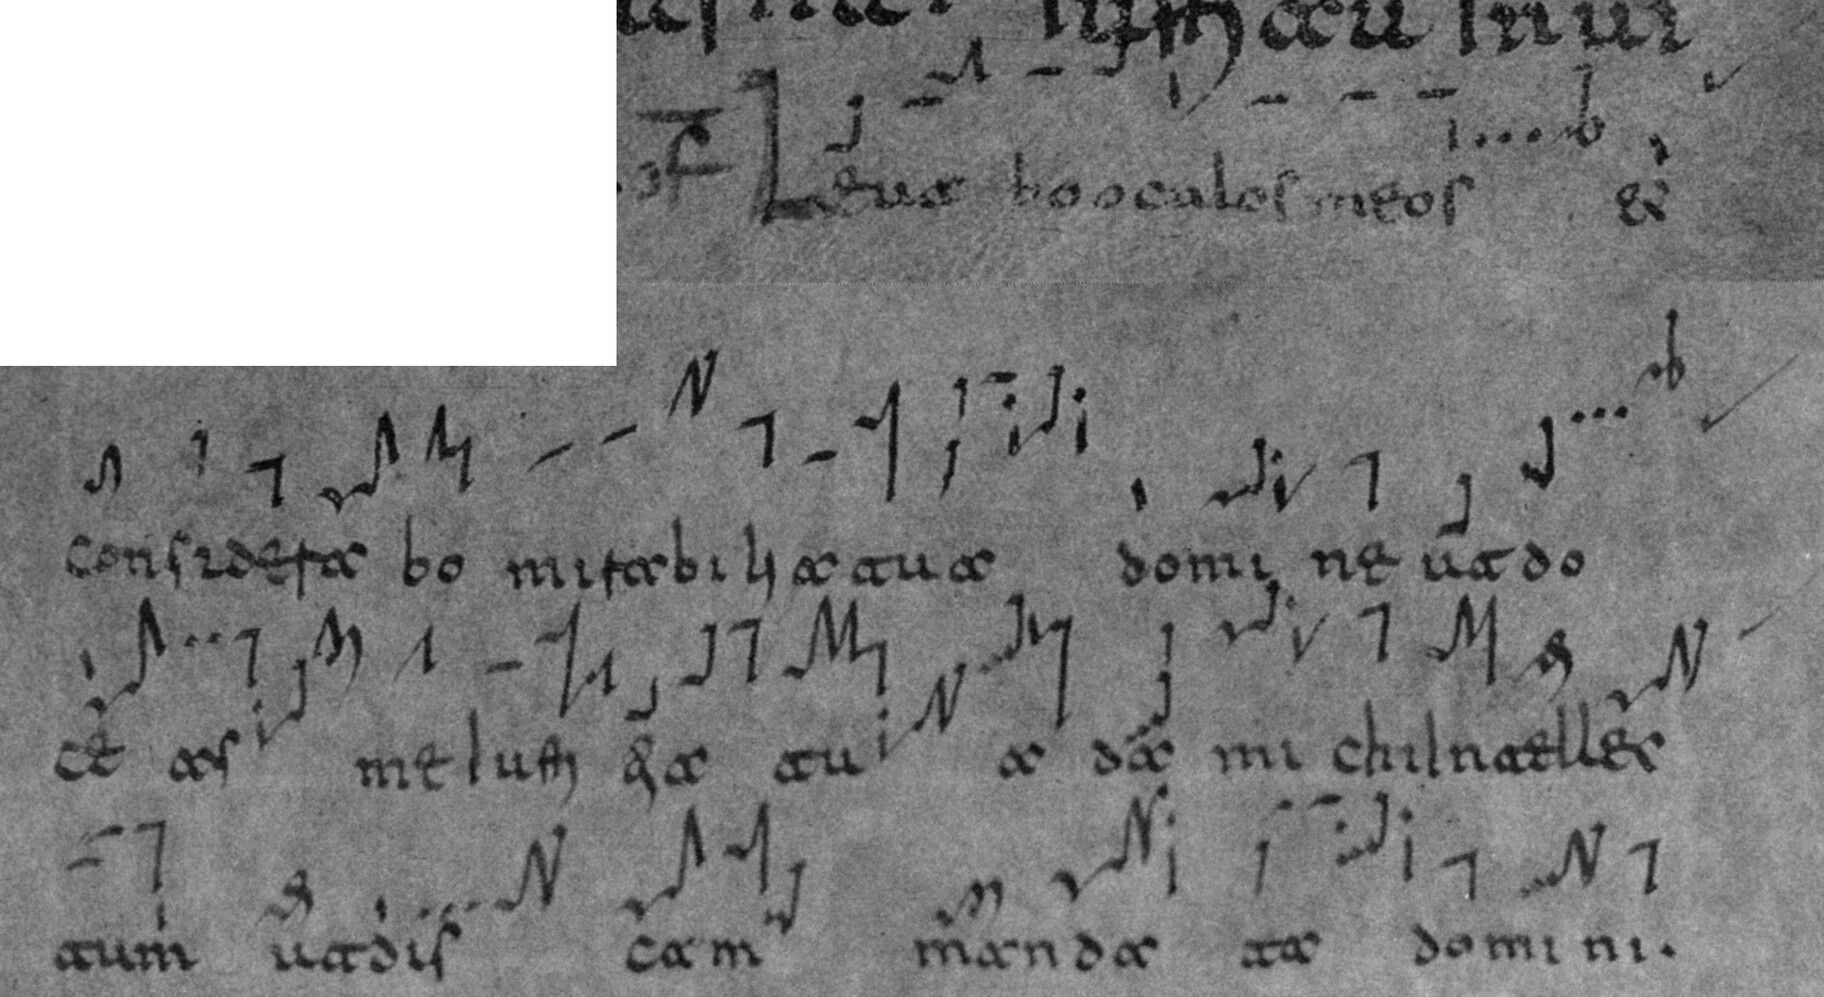 Leua bo oculos meos et
considera bo mirabilia tua domi ne ut do
ce as me iusti tia tu a da mi chi intellec
tum ut dis cam manda ta domi ni.